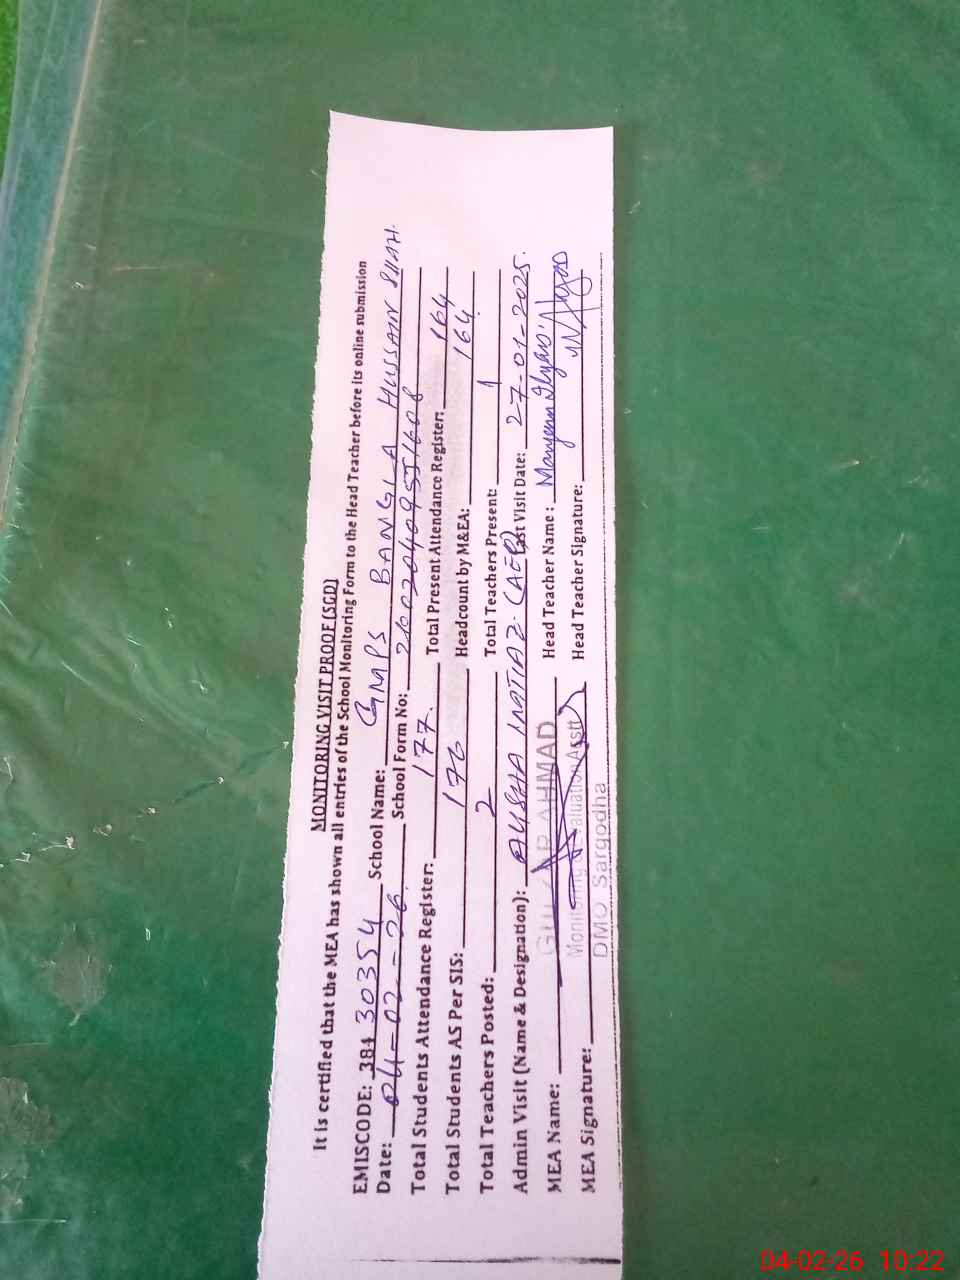 MONITORING VISIT PROOF (SGD)
It is certified that the MEA has shown all entries of the School Monitoring Form to the Head Teacher before its online submission
EMISCODE: 384 30354 School Name: GMPS BANGLA HUSSAIN SHAH.
Date: 04-02-26. School Form No:
Total Students Attendance Register: 177. Total Present Attendance Register: 164
Total Students AS Per SIS: 176 Headcount by M&EA: 164
Total Teachers Posted: 2 Total Teachers Present: 1
Admin Visit (Name & Designation): AYSHA IMTIAZ. (AEO) Last Visit Date: 27-01-2025.
MEA Name: AHMAD Head Teacher Name: Maryam Ilyas
Monitoring & Evaluation Asstt
MEA Signature: Head Teacher Signature:
DMO Sargodha
04-02-26 10:22